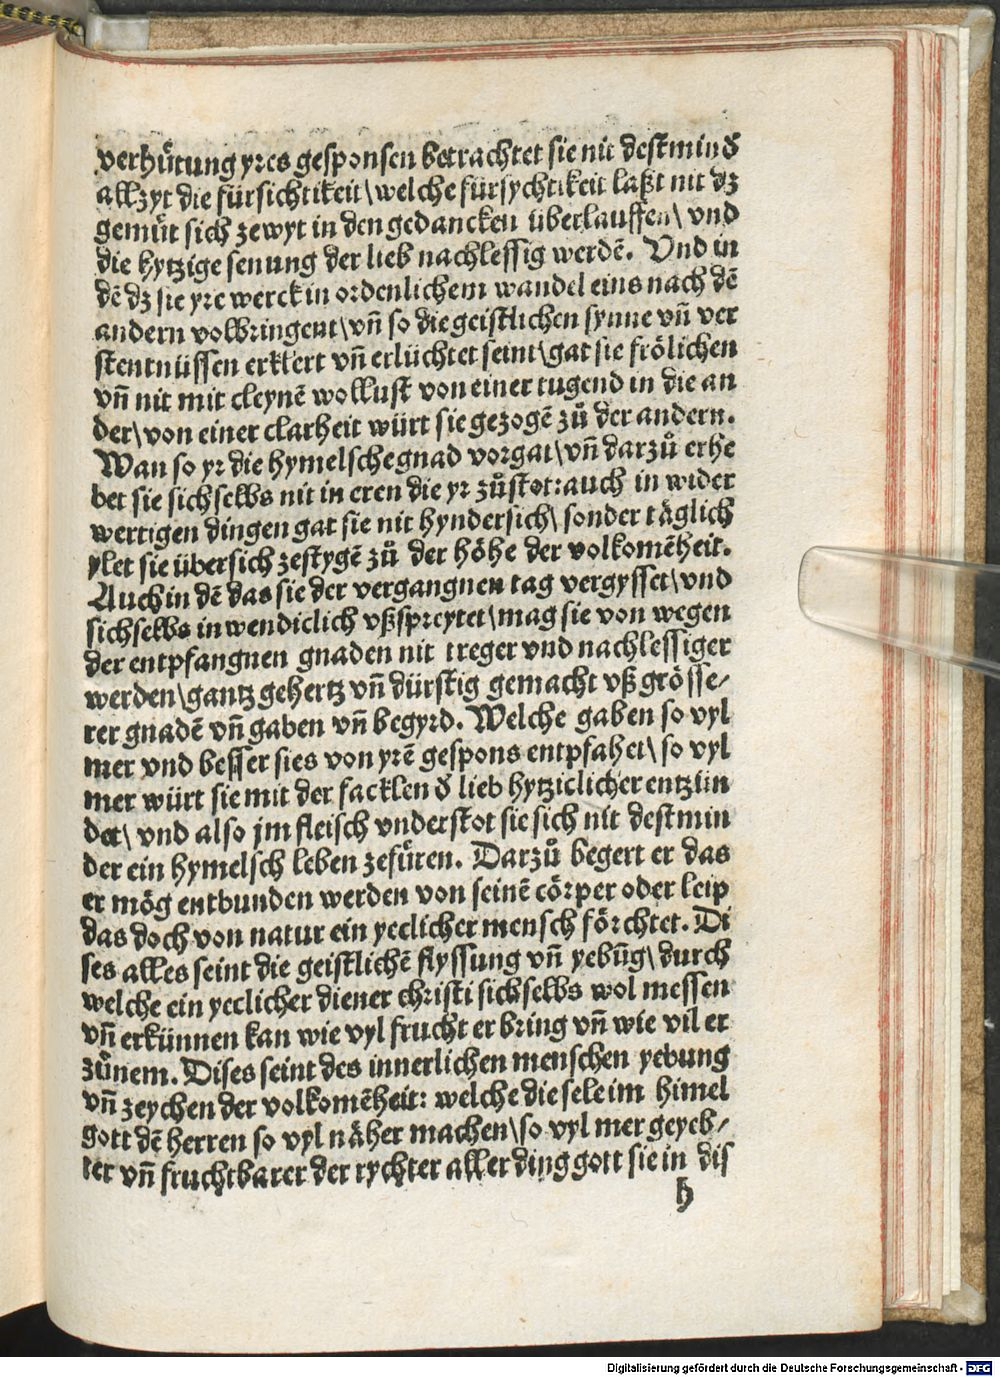 verhuͤtung yres gesponsen betrachtet sie nit destmind̕
allzyt die fürsichtikeit\welche fürsychtikeit laßt nit dz
gemuͤt sich zewyt in den gedancken überlauffen\ vnd
die hytzige senung der lieb nachlessig werdē. Vnd in
dē dz sie yre werck in ordenlichem wandel eins nach dē
andern volbringent\vn̄ so die geistlichen synne vn̄ ver
stentnüssen erklert vn̄ erlüchtet seint\gat sie frölichen
vn̄ nit mit cleynē wollust von einer tugend in die an
der\von einer clarheit würt sie gezogē zuͦ der andern.
Wan so yr die hymelsche gnad vorgat\vn̄ darzuͦ erhe
bet sie sichselbs nit in eren die yr zuͦstot:auch in wider
wertigen dingen gat sie nit hyndersich\ sonder täglich
ylet sie übersich zestygē zuͦ der höhe der volkomēheit.
Auch in dē das sie der vergangnen tag vergysset\vnd
sichselbs inwendiclich vßspreytet\mag sie von wegen
der entpfangnen gnaden nit treger vnd nachlessiger
werden\gantz gehertz vn̄ dürstig gemacht vß grösse⸗
rer gnadē vn̄ gaben vn̄ begyrd. Welche gaben so vyl
mer vnd besser sies von yrē gespons entpfahet\ so vyl
mer würt sie mit der facklen d̕ lieb hytziclicher entzün
det\ vnd also jm fleisch vnderstot sie sich nit destmin
der ein hymelsch leben zefüren. Darzuͦ begert er das
er mög entbunden werden von seinē cörper oder leip
das doch von natur ein yeclicher mensch förchtet. Di
ses alles seint die geistlichē flyssung vn̄ yebūg\durch
welche ein yeclicher diener christi sichselbs wol messen
vn̄ erkünnen kan wie vyl frucht er bring vn̄ wie vil er
zuͦnem. Dises seint des innerlichen menschen yebung
vn̄ zeychen der volkomēheit: welche die sele im himel
gott dē herren so vyl näher machen\so vyl mer geyeb⸗
ter vn̄ fruchtbarer der rychter aller ding gott sie in dis
h
Digitalisierung gefördert durch die Deutsche Forschungsgemeinschaft - DFG